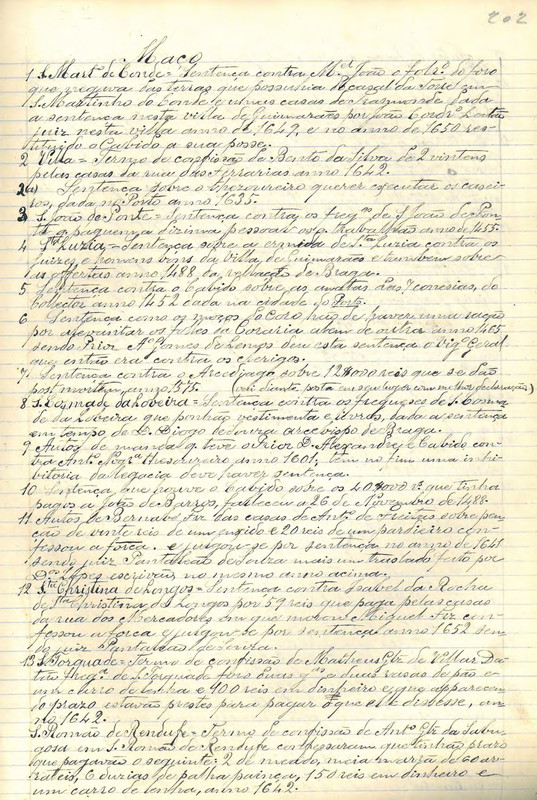 202
Maço
1 S. Mart. de Conde = Sentença contra M.el João o fols.º do foro
que pagava das terras que possuhia do casal da Torre em
S. Martinho do Conde e umas casas de Trasmonde, dada
a sentença nesta villa de Guimarães por João
juiz nesta villa anno de 1649, e no anno de 1650 res-
tituido o Cabido a sua posse.
2 Villa = Termo de confissão de Bento da Silva de 2 vintens
pelas casas da rua das Ferrarias anno 1642.
2(a) Sentença sobre o Thezoureiro querer executar os casei-
ros, dada no Porto anno 1635.
3 S. João de Ponte = Sentença contra os freg.es de S. João de Pon-
te q. paguem a dizima pessoal os q. trabalhão anno de 1455.
4 S.ta Luzia = Sentença sobre a ermida de S.ta Luzia contra os
juizes e homens bons da villa de Guimarães e tambem sobre
as offertas anno 1488, da relação de Braga.
5 Sentença contra o Cabido sobre as annatas das Conesias, do
collector anno 1452 dada na cidade do Porto.
6 Sentença como os moços do Coro hão de haver uma ração
por alevantar os folles da Coraria alem de outra anno 1465
sendo Prior A.º Gomes de Lemos deu esta sentença o vig.º Geral
que então era contra os clerigos.
7 Sentença contra o Arcediago sobre 12$000 reis que se dão
post mortem, anno 1575. (vai diante, posta em seu lugar com melhor declaração)
8 S. Cosmade da Lobeira = Sentença contra os freguezes de S. Cosma-
de da Lobeira que ponhão vestimenta e livros, dada a sentença
em tempo de D. Diogo de Souza arcebispo de Braga.
9 Autos de manda q. teve o Prior D. Alexandre e Cabido con-
tra Ant.º Nog.ra thesoureiro anno 1601, tem no fim uma inhi-
bitoria da legacia deve haver sentença.
10 Sentença que houve o Cabido sobre os 40$000 rs. que tinha
pagos a João de Barros, falleceu a 26 de Novembro de 1488.
11 Autos de Bernabe Frz das casas de Ant.º de Freitas sobre pen-
ção de vinte reis de um enxido e 20 reis de um pardieiro con-
fessou a força. e julgou-se por sentença no anno de 1641
sendo juiz Pantaleão de Souza mais um traslado feito por
D.os Lopes escrivão no mesmo anno acima.
12 S.ta Christina de Longos = Sentença contra Isabel da Rocha
de S.ta Christina de Longos por 59 reis que paga pelas casas
da rua dos Mercadores em que morou Miguel Frz con-
fessou a força e julgou-se por sentença anno 1652 sen-
do juiz Pantaleão de Souza.
13 S. Torquade = Termo de confissão de Matheus Glz de Villar Da-
tão freg.ª de S. Torquade foro duas g.as duas vasas de pão e
um carro de lenha e 400 reis em dinheiro e que apparecen-
do prazo estavão prestes para pagar o que elle dissesse, an-
no 1642.
S. Romão de Rendufe = Termo de confissão de Ant.º Glz da Sabu-
gosa em S. Romão de Rendufe confessaram que tinhão prazo
que pagavão o seguinte: 2 de meado, meia marrã de 60 ar-
rateis, 6 duzias de palha painça, 150 reis em dinheiro e
um carro de lenha, anno 1642.